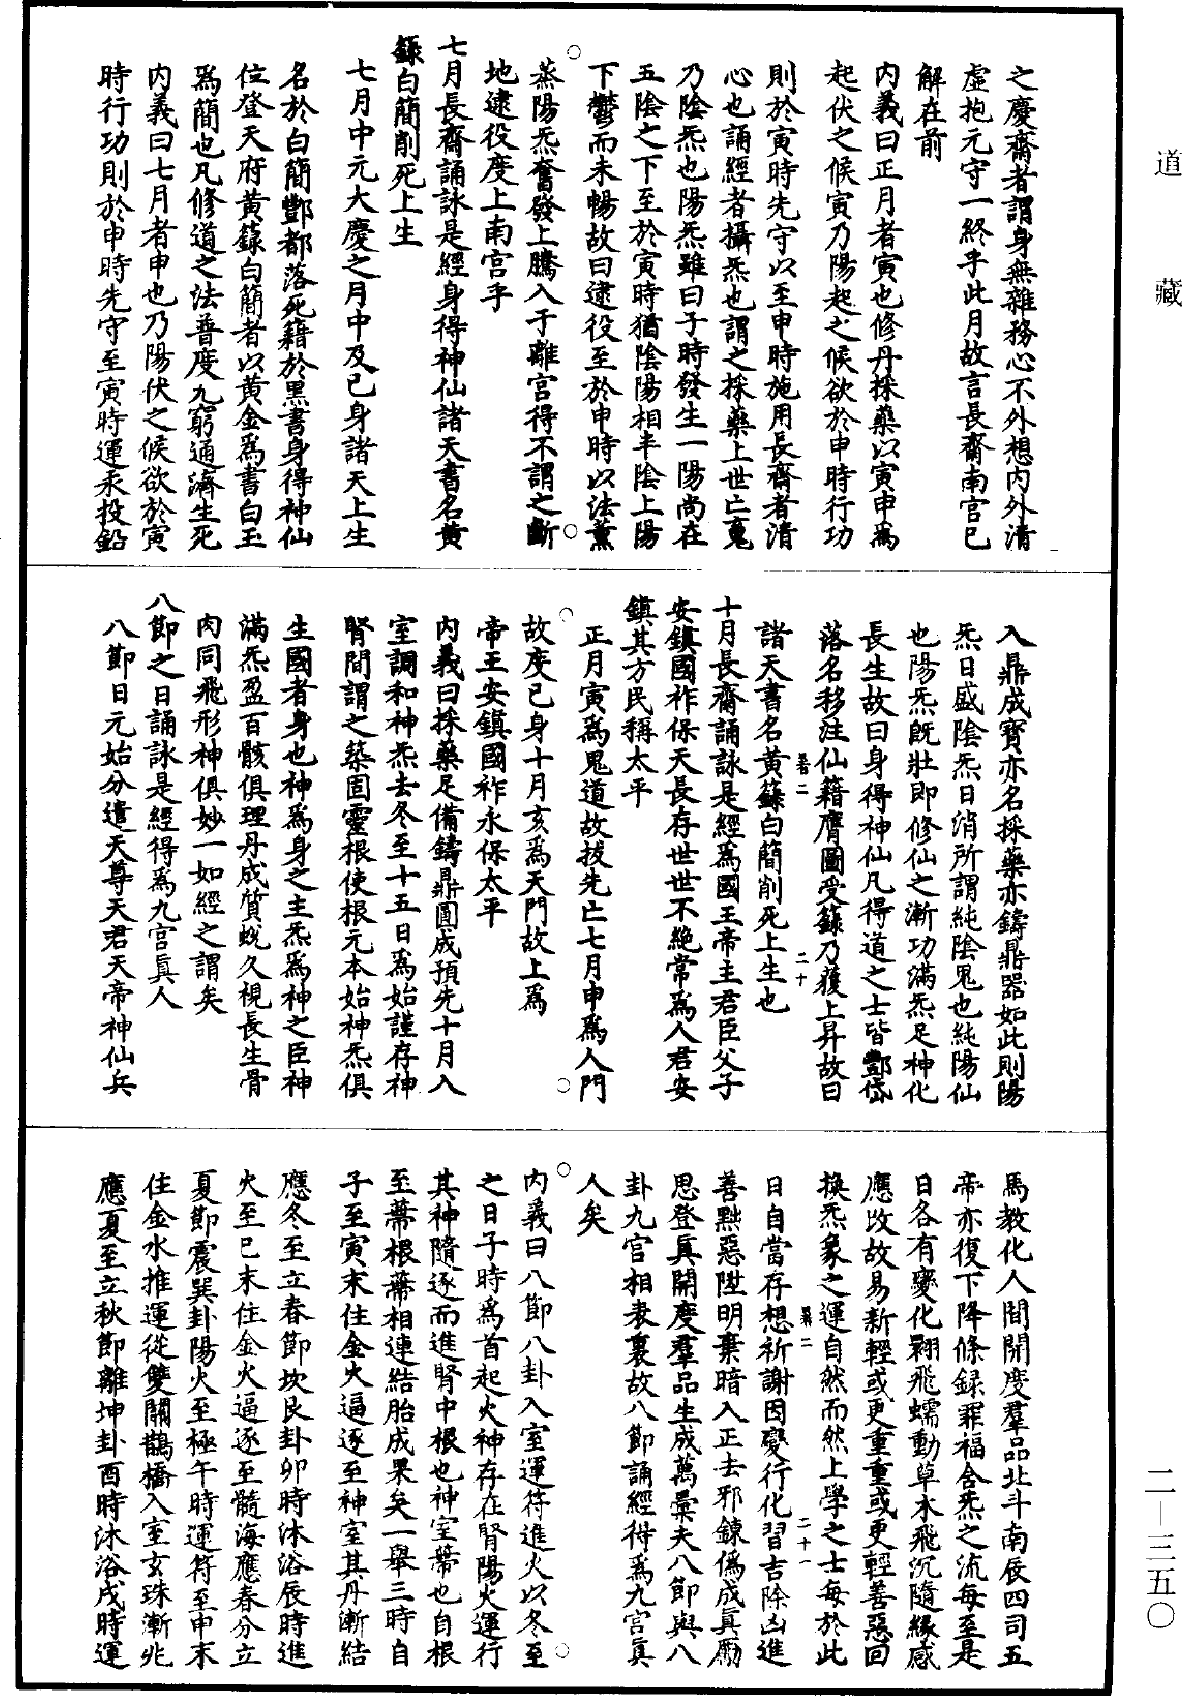 之慶齋者謂身無雜務心不外想內外清
虛抱元守一終乎此月故言長齋南宮已
解在前
內義曰正月者寅也修丹採藥以寅申爲
起伏之候寅乃陽起之候欲於申時行功
則於寅時先守以至申時施用長齋者清
心也誦經者攝炁也謂之採藥上世亡䰟
乃陰炁也陽炁雖曰子時發生一陽尚在
五陰之下至於寅時猶陰陽相半陰上陽
下鬱而未暢故曰逮役至於申時以法薰
蒸陽炁奮發上騰入于離宮得不謂之斷
地逮役度上南宮乎
七月長齋誦詠是經身得神仙諸天書名黃
籙白簡削死上生
七月中元大慶之月中及已身諸天上生
名於白簡酆都落死籍於黑書身得神仙
位登天府黃籙白簡者以黃金爲書白玉
爲簡也凡修道之法普度九窮通濟生死
內義曰七月者申也乃陽伏之候欲於寅
時行功則於申時先守至寅時運汞投鉛
入鼎成寶亦名採藥亦鑄鼎器如此則陽
炁日盛陰炁日消所謂純陰鬼也純陽仙
也陽炁旣壯卽修仙之漸功滿炁足神化
長生故曰身得神仙凡得道之士皆酆岱
落名移注仙籍膺圖受籙乃獲上昇故曰
諸天書名黃籙白簡削死上生也
十月長齋誦詠是經爲國王帝主君臣父子
安鎮國祚保天長存世世不絕常爲人君安
鎮其方民稱太平
正月寅爲鬼道故拔先亡七月申爲人門
故度已身十月亥爲天門故上爲
帝王安鎮國祚永保太平
內義曰採藥足備鑄鼎圓成預先十月入
室調和神炁去冬至十五日爲始謹存神
腎間謂之築固靈根使根元本始神炁俱
生國者身也神爲身之主炁爲神之臣神
滿炁盈百骸俱理丹成質蛻久視長生骨
肉同飛形神俱妙一如經之謂矣
八節之日誦詠是經得爲九宮眞人
八節日元始分遣天尊天君天帝神仙兵
馬教化人間開度羣品北斗南辰四司五
帝亦復下降條録罪福含炁之流每至是
日各有變化翾飛蠕動草木飛沉隨緣感
應改故易新輕或更重重或更輕善惡回
換炁象之運自然而然上學之士每於此
日自當存想祈謝因變行化習吉除凶進
善黜惡陞明棄暗入正去邪鍊僞成眞勵
思登眞開度羣品生成萬彙夫八節與八
卦九宮相表裏故八節誦經得爲九宮眞
人矣
內義曰八節八卦入室運符進火以冬至
之日子時爲首起火神存在腎陽火運行
其神隨逐而進腎中根也神室蔕也自根
至蔕根蔕相連結胎成果矣一舉三時自
子至寅末住金火逼逐至神室其丹漸結
應冬至立春節坎艮卦卯時沐浴辰時進
火至巳末住金火逼逐至髓海應春分立
夏節震巽卦陽火至極午時運符至申末
住金水推運從雙關鵲橋入室玄珠漸兆
應夏至立秋節離坤卦酉時沐浴戌時運
道
藏
二—三五〇
二十
二十一